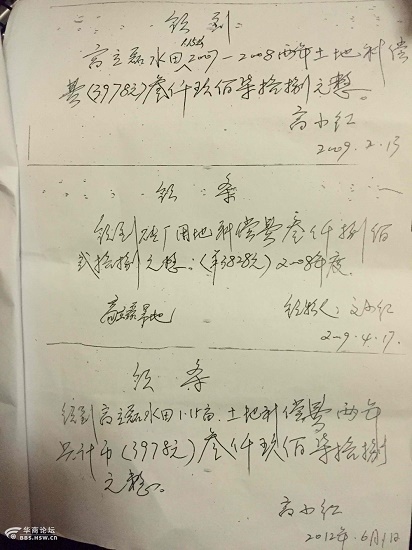 领到
1.15亩
高立磊水田2007—2008两年土地补偿
费(3978元)叁仟玖佰柒拾捌元整。
高小红
2009.2.13
领条
领到砖厂用地补偿费叁仟捌佰
贰拾捌元整:(¥3828元)2008年度
高立磊旱地
经投人:文小红
2009.4.17.
领条
领到高立磊水田1.15亩土地补偿费两年
共计币(3978元)叁仟玖佰柒拾捌
元整。
高小红
2012年6月1日
华商论坛
BBS.HSW.CN